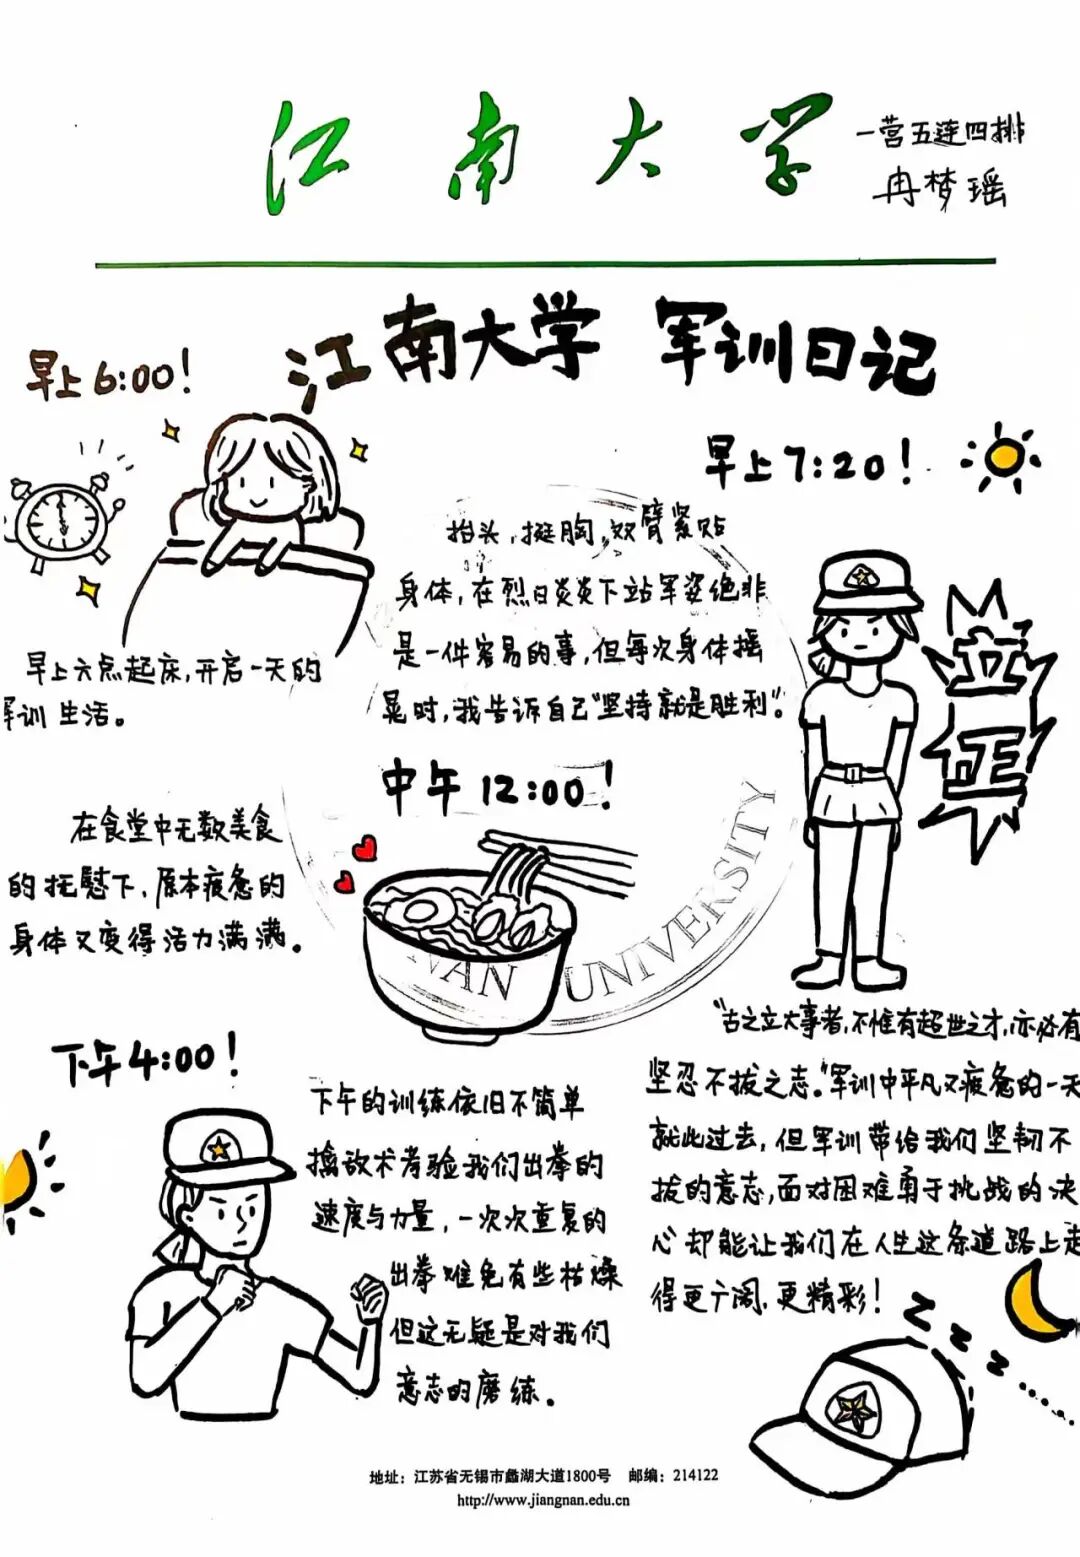 江南大学
一营五连四排
冉梦瑶
江南大学 军训日记
早上6:00!
早上六点起床,开启一天的
军训生活。
早上7:20!
抬头,挺胸,双臂紧贴
身体,在烈日炎炎下站军姿绝非
是一件容易的事,但每次身体摇
晃时,我告诉自己“坚持就是胜利”。
立正
中午12:00!
在食堂中无数美食
的抚慰下,原本疲惫的
身体又变得活力满满。
NAN UNIVERSITY
下午4:00!
下午的训练依旧不简单
擒敌术考验我们出拳的
速度与力量,一次次重复的
出拳难免有些枯燥
但这无疑是对我们
意志的磨练。
“古之立大事者,不惟有超世之才,亦必有
坚忍不拔之志。”军训中平凡又疲惫的一天
就此过去,但军训带给我们坚韧不
拔的意志,面对困难勇于挑战的决
心却能让我们在人生这条道路上走
得更广阔,更精彩!
Z Z Z Z……
地址:江苏省无锡市蠡湖大道1800号 邮编:214122
http://www.jiangnan.edu.cn